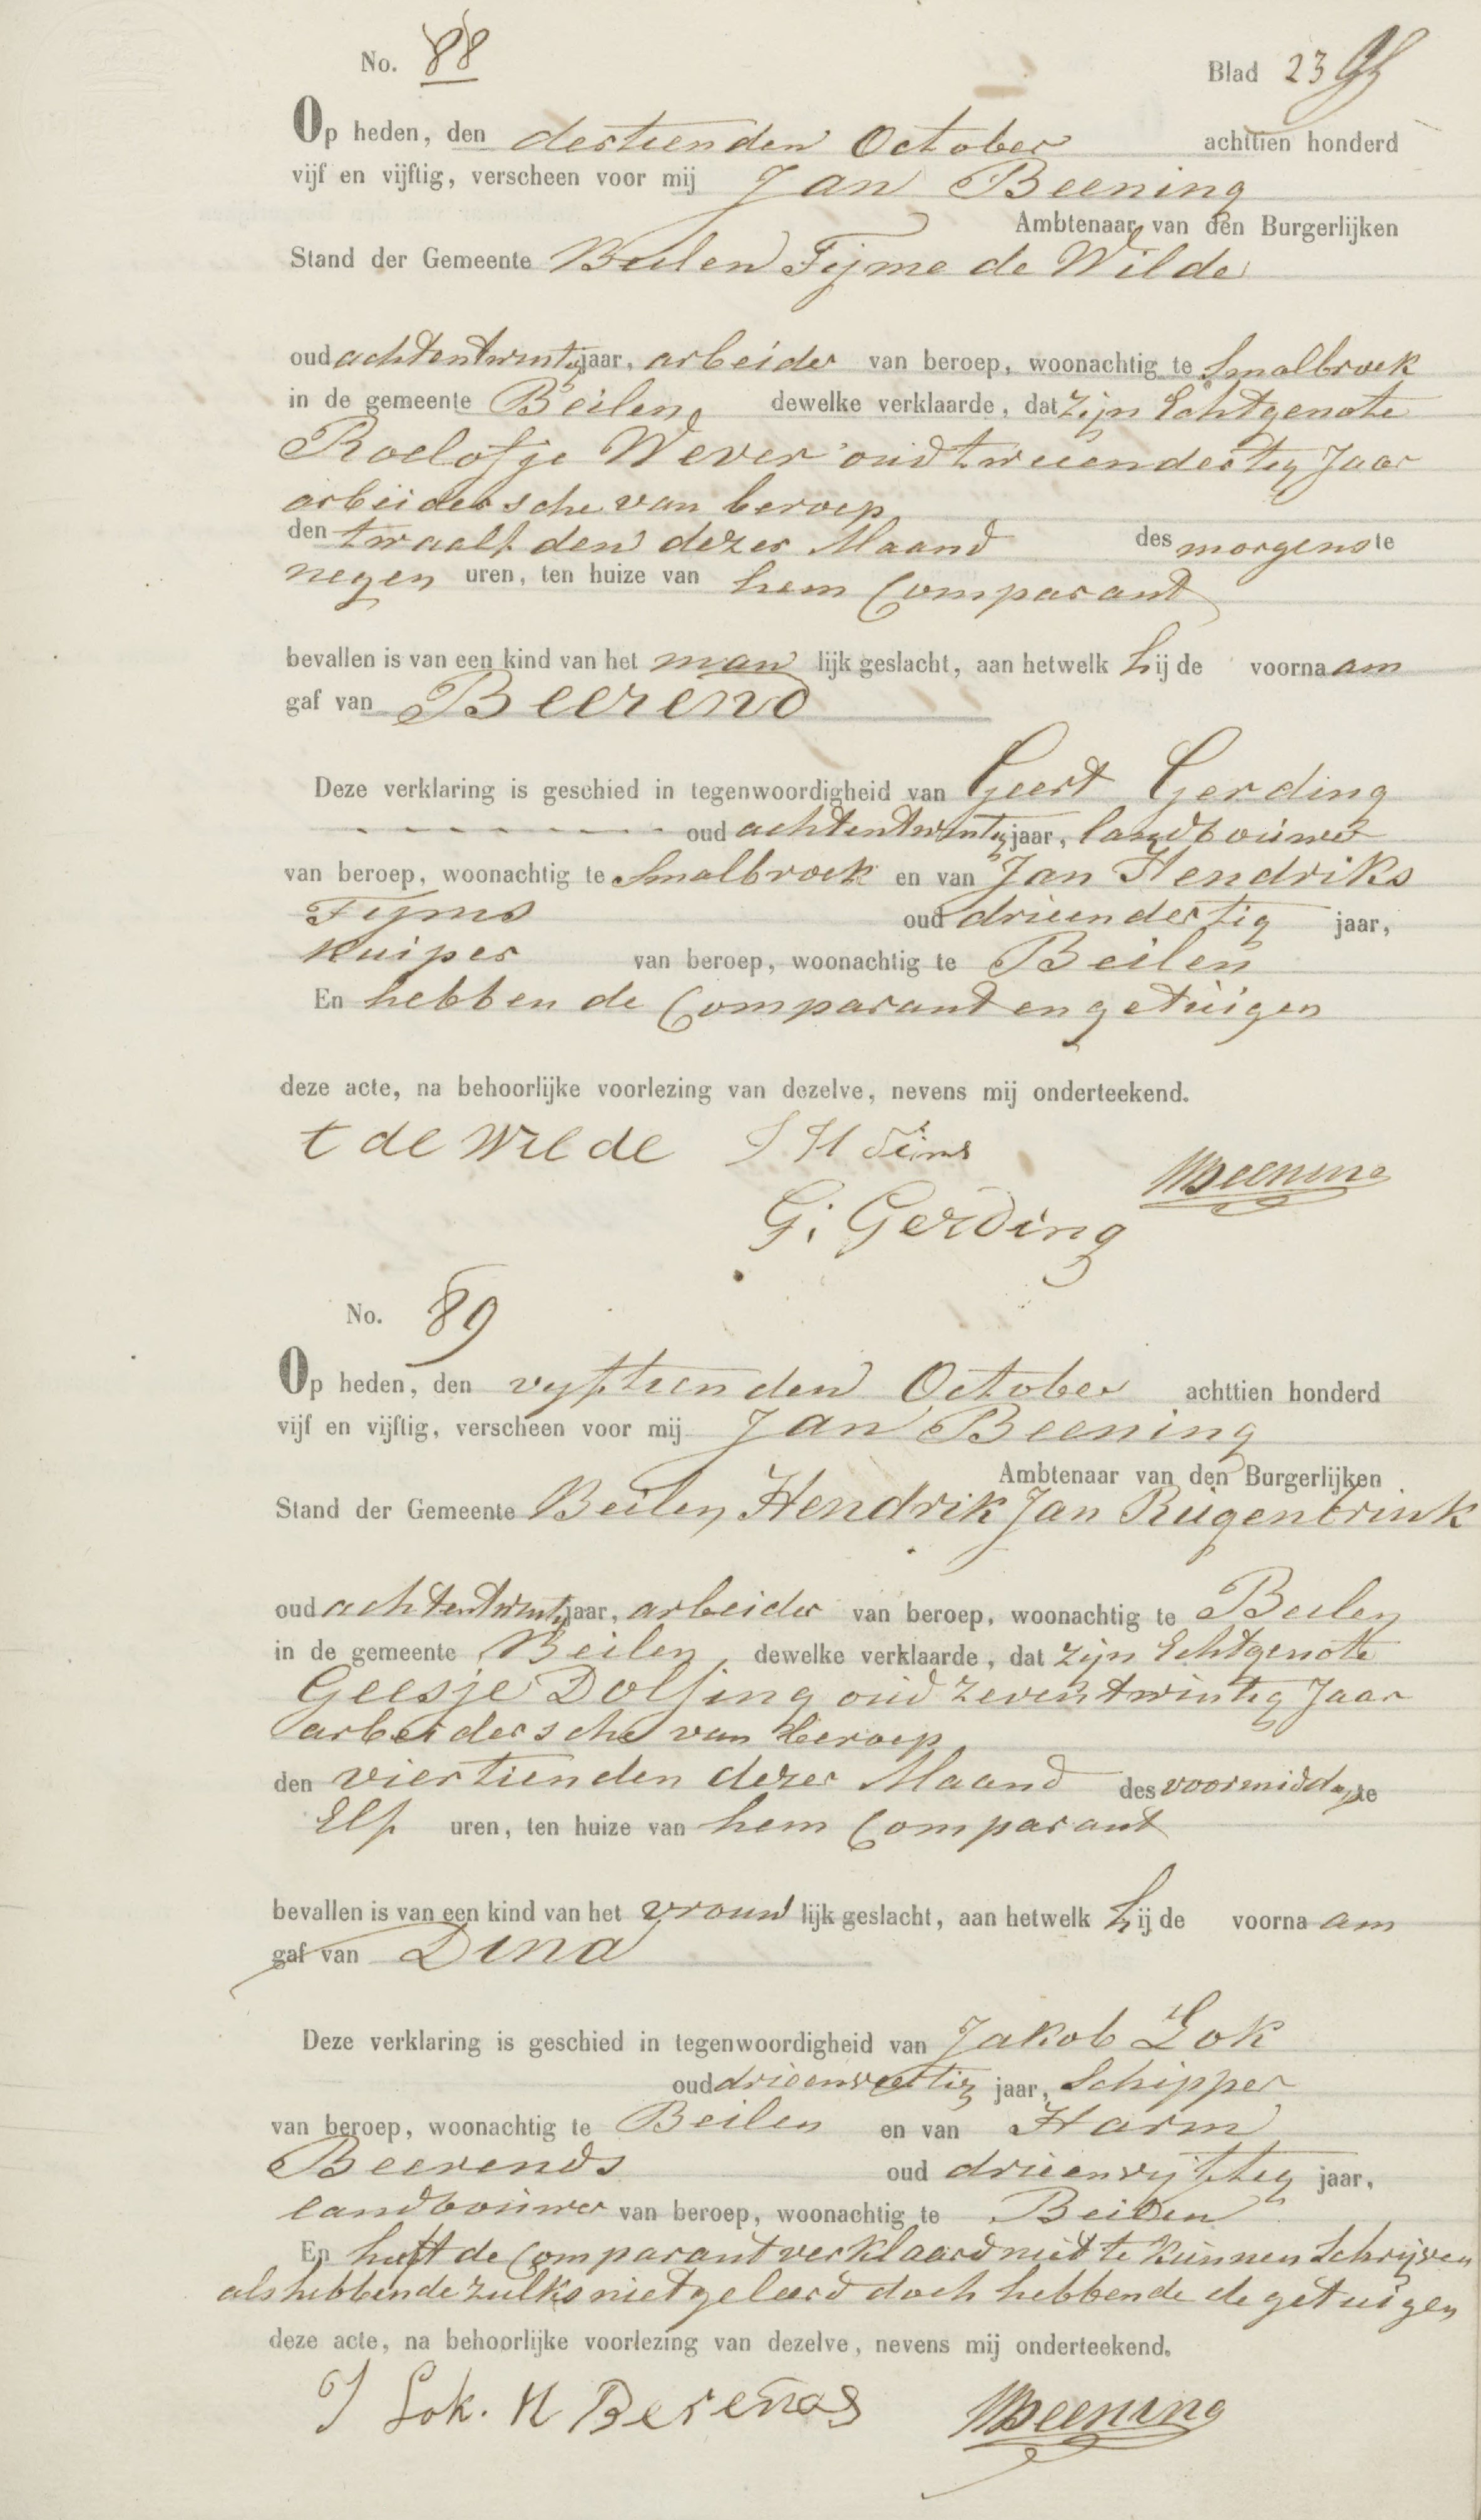 No. 88
Blad 23
Op heden, den dertienden October achttien honderd
vijf en vijftig, verscheen voor mij Jan Beening
Ambtenaar van den Burgerlijken
Stand der Gemeente Beilen Tijme de Wilde
oud achtentwintig jaar, arbeider van beroep, woonachtig te Smalbroek
in de gemeente Beilen, dewelke verklaarde, dat zijn Echtgenote
Roelofje Wever oud tweeendertig Jaar
arbeidersche van beroep
den twaalfden dezer Maand des morgens te
negen uren, ten huize van hem Comparant
bevallen is van een kind van het man lijk geslacht, aan hetwelk hij de voornaam
gaf van Beerend
Deze verklaring is geschied in tegenwoordigheid van Geert Gerding
oud achtentwintig jaar, landbouwer
van beroep, woonachtig te Smalbroek en van Jan Hendriks
Tijms oud drieendertig jaar,
Kuiper van beroep, woonachtig te Beilen
En hebben de Comparant en getuigen
deze acte, na behoorlijke voorlezing van dezelve, nevens mij onderteekend.
t de Wilde J H Tims
JBeening
G. Gerding
No. 89
Op heden, den vyftienden October achttien honderd
vijf en vijftig, verscheen voor mij Jan Beening
Ambtenaar van den Burgerlijken
Stand der Gemeente Beilen Hendrik Jan Ruigenbrink
oud achtentwintig jaar, arbeider van beroep, woonachtig te Beilen
in de gemeente Beilen, dewelke verklaarde, dat zijn Echtgenote
Geesje Dolfing oud zevenentwintig Jaar
arbeidersche van beroep
den viertienden dezer Maand des voormiddags te
Elf uren, ten huize van hem Comparant
bevallen is van een kind van het vrouw lijk geslacht, aan hetwelk hij de voornaam
gaf van Dina
Deze verklaring is geschied in tegenwoordigheid van Jakob Lok
oud drieenveertig jaar, Schipper
van beroep, woonachtig te Beilen en van Harm
Beerends oud drieenvijftig jaar,
landbouwer van beroep, woonachtig te Beilen
En heeft de Comparant verklaard niet te kunnen Schrijven
als hebbende zulks niet geleerd doch hebbende de getuigen
deze acte, na behoorlijke voorlezing van dezelve, nevens mij onderteekend.
J Lok. H Berends JBeening